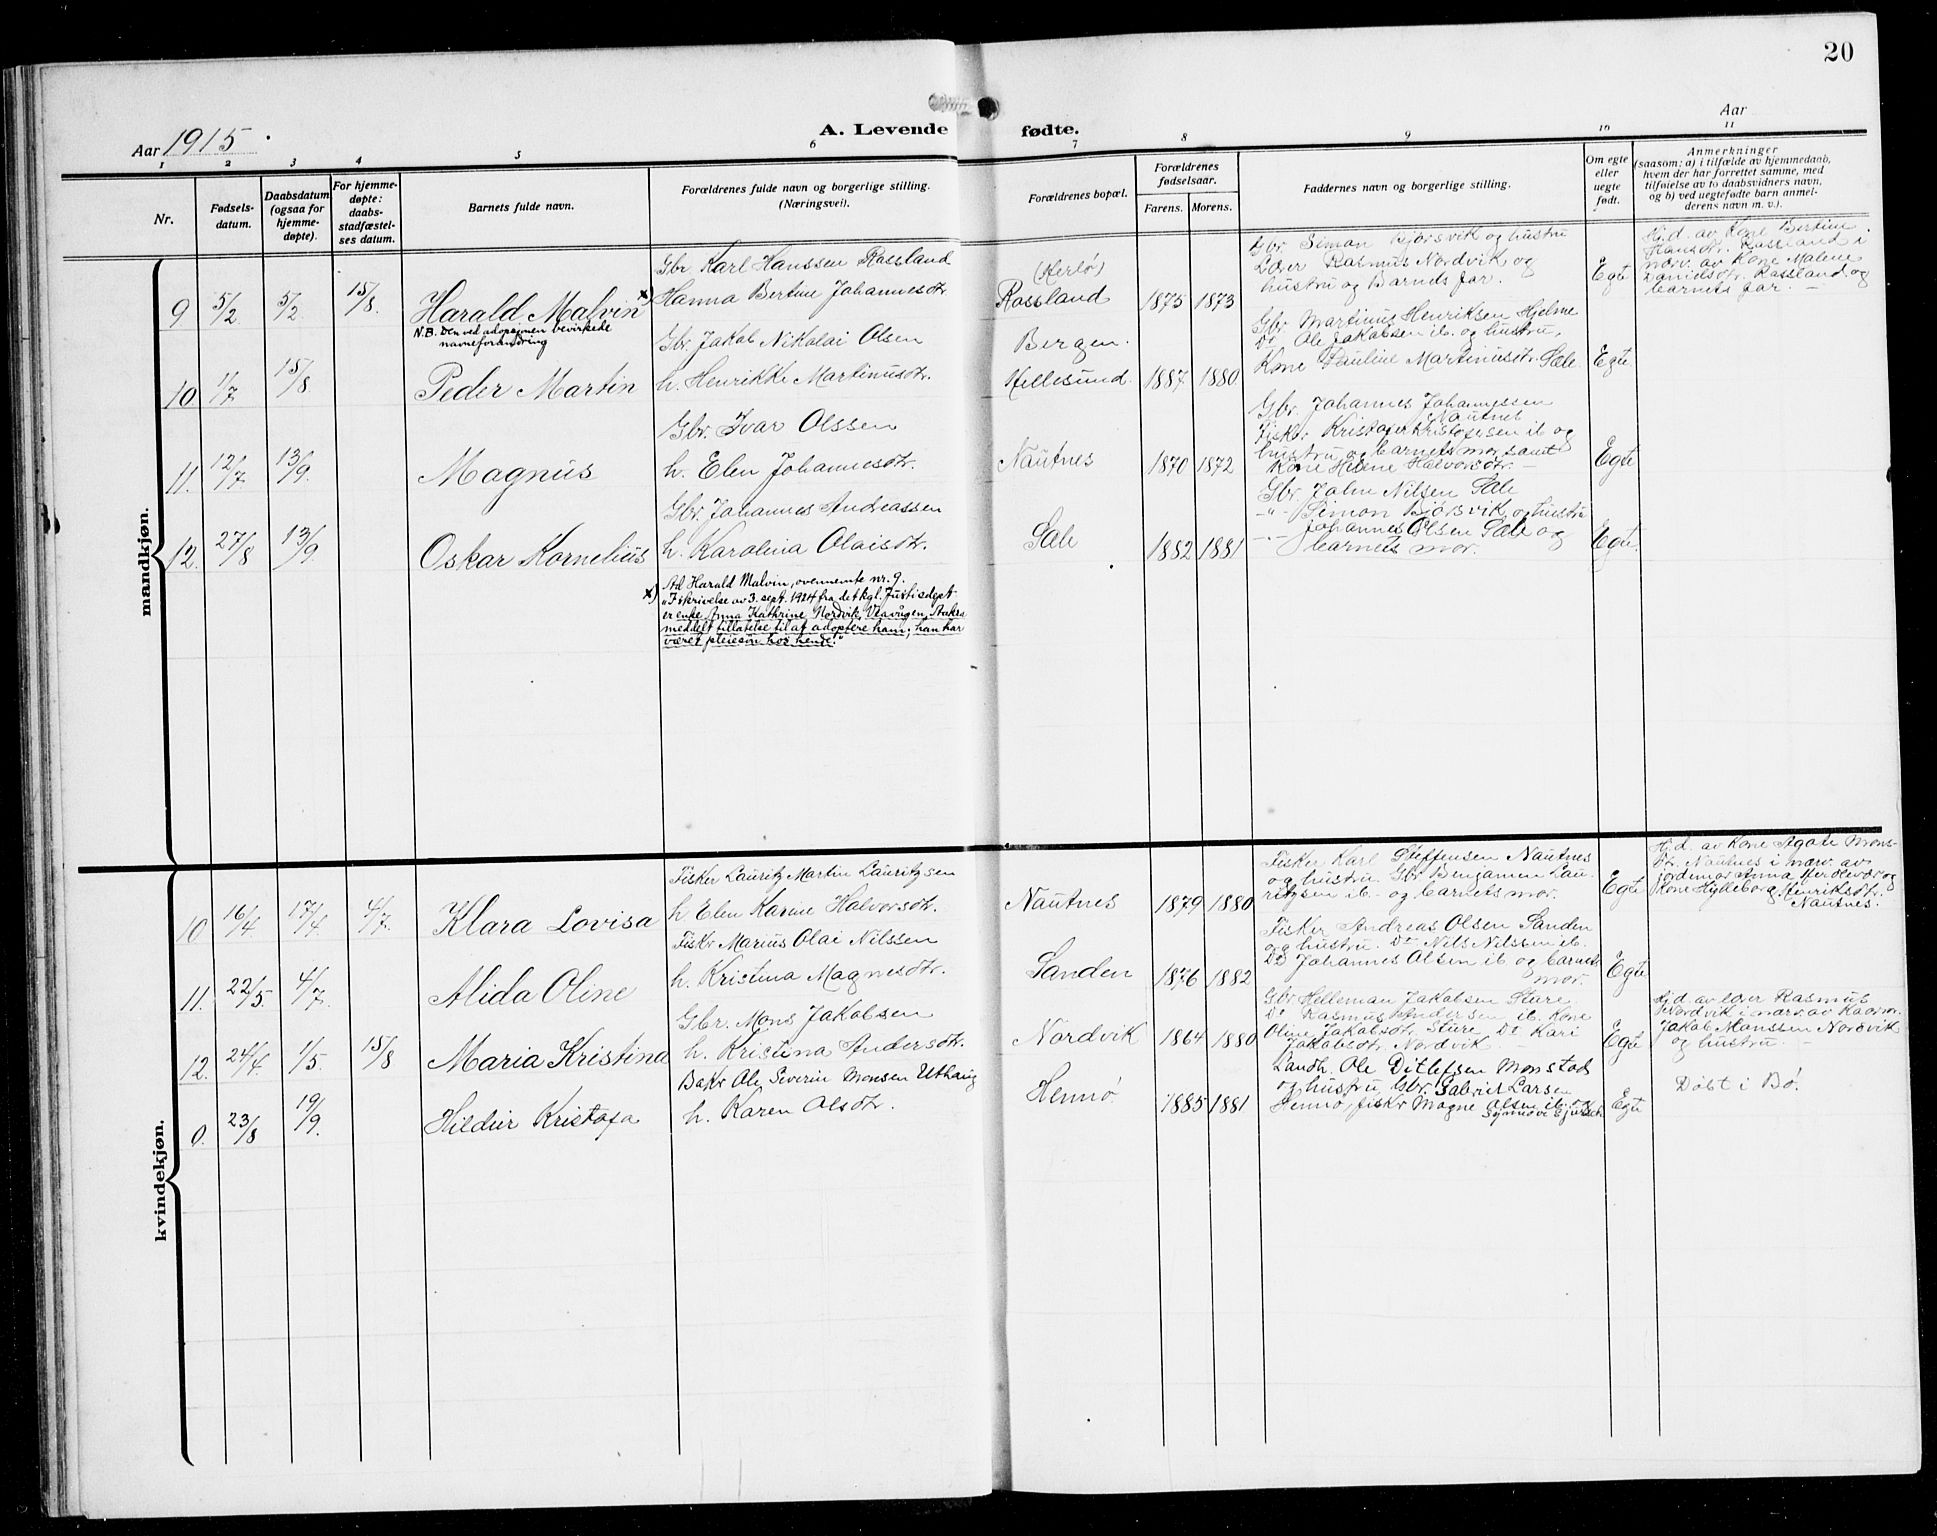 20
Aar 1915.
A. Levende fødte.
Aar
1 2 3 4 5 6 7 8 9 10 11
Nr.
Fødsels-
datum.
Daabsdatum
(ogsaa for
hjemme-
døpte).
For hjemme-
døpte:
daabs-
stadfæstel-
ses datum.
Barnets fulde navn.
Forældrenes fulde navn og borgerlige stilling.
(Næringsvei).
Forældrenes bopæl.
Forældrenes
fødselsaar.
Farens. Morens.
Faddernes navn og borgerlige stilling.
Om egte
eller
uegte
født.
Anmerkninger
(saasom: a) i tilfælde av hjemmedaab,
hvem der har forrettet samme, med
tilføielse av to daabsvidners navn,
og b) ved uegtefødte barn anmel-
derens navn m. v.).
mandkjøn.
9 5/2 5/2 15/8 Harald Malvin x)
N.B. Den ved adopsjonen bevirkede
navneforandring
Gbr Karl Hanssen Rossland
Hanna Bertine Johannesdtr.
(Herlø)
Rossland 1875 1873
Gbr. Simon Bjørsvik og hustru
Lærer Rasmus Nordvik og
hustru og Barnets far.
Egte
Hj.d. av Kone Bertine
Hansdtr. Rossland i
nærv. av Kone Malene
Danidsdtr. Rossland og
barnets far. –
10. 1/7 15/8 Peder Martin
Gbr. Jakob Nikolai Olsen
h. Henrikke Martinusdtr.
Bergen.
Hellesund. 1887. 1880.
Gbr. Martinus Henriksen Hjelme
Do Ole Jakobsen ib. og hustru,
Kone Pauline Martinusdtr. Sæle
Egte
11. 12/7 13/9. Magnus
Gbr. Ivar Olssen
h. Elen Johannesdtr.
Nautnes 1870 1872
Gbr. Johannes Johannessen
Nautnes
Fisker Kristofer Kristofersen ib og
hustru og barnets mor samt
Kone Helene Halvorsdtr. –
Egte
12. 27/8 13/9. Oskar Kornelius
Gbr. Johannes Andreassen
h. Karolina Olaisdtr.
Sæle 1882 1881
Gbr. John Nilsen Sæle
–"– Simon Bjørsvik og hustru
–"– Johannes Olsen Sæle og
barnets mor.
Egte.
x) Ad Harald Malvin, ovennevnte nr. 9.
„I skrivelse av 3. sept. 1924 fra det kgl. Justisdept
er enke Anna Kathrine Nordvik, Veavågen,
meddelt tillatelse til at adoptere ham; han har
været pleiesøn hos hende."
kvindekjøn.
10 16/4 17/4 4/7 Klara Lovisa
Fisker Lauritz Martin Lauritzsen
h Elen Karine Halvorsdtr.
Nautnes 1879 1880
Fisker Karl Steffensen Nautnes
og hustru Gbr Benjamin Lau-
ritzsen ib. og barnets mor.
Egte
Hj.d. av Kone Agate Mons-
dtr. Nautnes i nærv. av
jordemor Anna Herdlevær og
Kone Hylleborg Henriksdtr.
Nautnes.
11. 22/5. 4/7. Alida Oline
Fiskr Marius Olai Nilssen
h. Kristina Magnesdtr.
Sanden 1876 1882
Fisker Andreas Olsen Sanden
og hustru. Do Nils Nilssen ib.
Do Johannes Olsen ib og barnets
mor.
Egte
12. 24/4 1/5. 15/8 Maria Kristina
Gbr. Mons Jakobsen
h. Kristina Andersdtr.
Nordvik 1864 1880
Gbr Helleman Jakobsen Sture
Do Rasmus Andersen ib. Kone
Oline Jakobsdtr. Sture Do Kari
Jakobsdtr. Nordvik. –
Egte
Hj.d. av lærer Rasmus
Nordvik i nærv. av Kaarm.
Jakob Monssen Nordvik
og hustru. –
0. 23/8 19/9. Hildur Kristofa
Bakr Ole Severin Monsen Uthaug
h. Karen Olsdtr.
Hennø 1885 1881
Landh. Ole Ditlefsen Monstad
og hustru, Gbr. Gabriel Larsen
Hennø, fiskr Magne Olsen ib. og
Synnøve
Egte
Døbt i Bø.